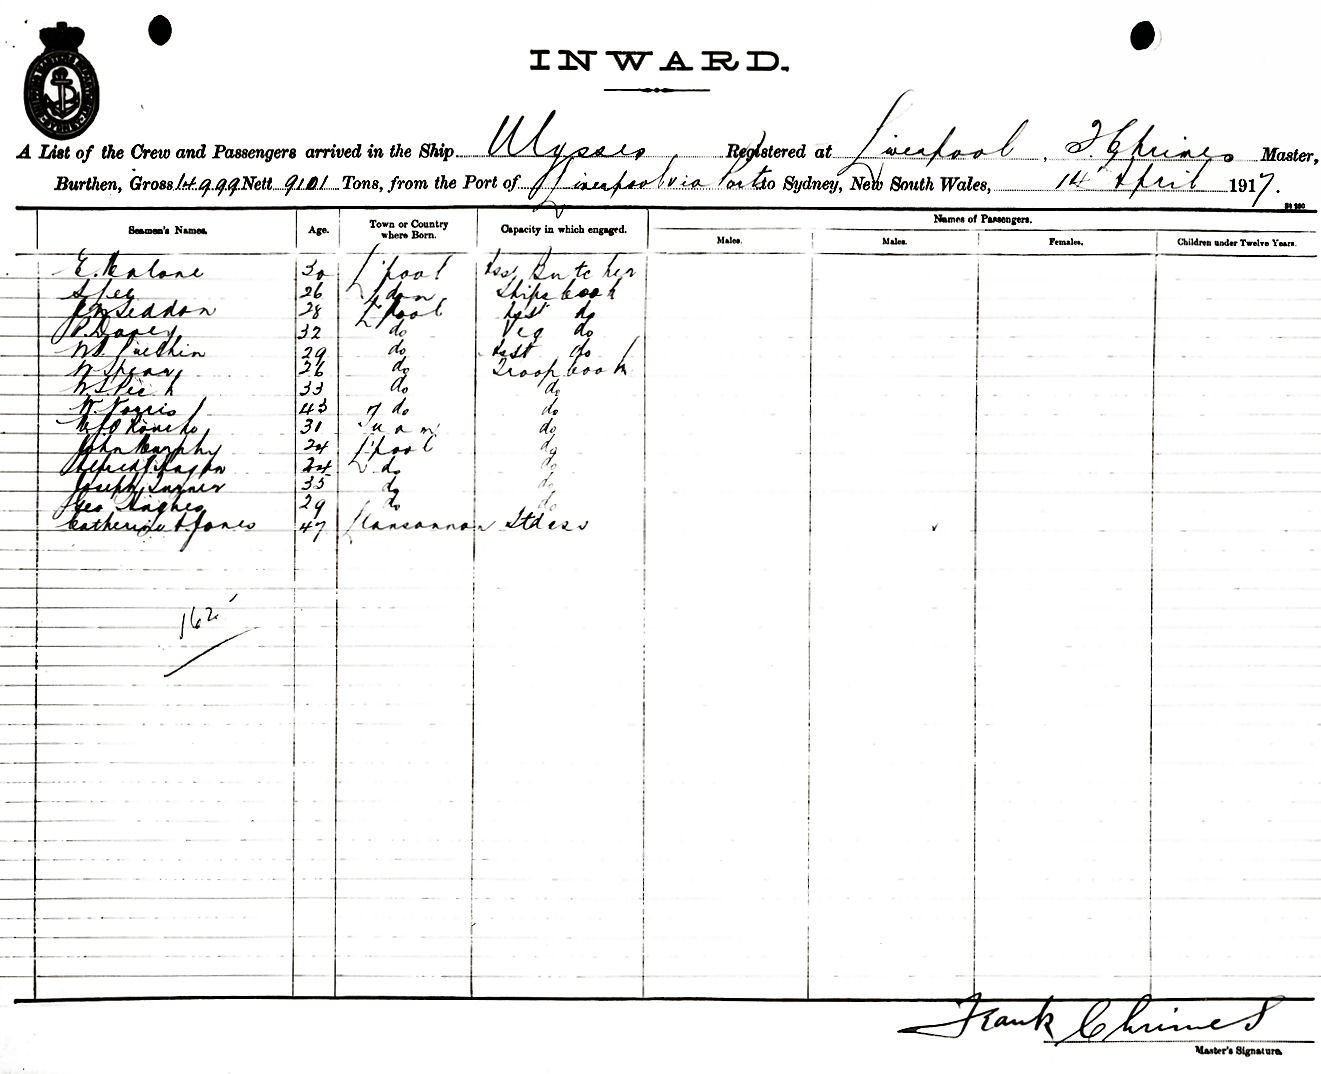 INWARD.
A List of the Crew and Passengers arrived in the Ship Ulysses, Registered at Liverpool, F. Chrimes Master,
Burthen, Gross 14999 Nett 9101 Tons, from the Port of Liverpool via Ports to Sydney, New South Wales, 14 April 1917.
Names of Passengers.
Seamen's Names. Age. Town or Country where Born. Capacity in which engaged. Males. Males. Females. Children under Twelve Years.
E. Malone 30 L'pool Asst Butcher
26 Ldon Ships Cook
Seddon 28 L'pool Asst do
P. Davey 32 do Veg do
29 do Asst do
W Spear 26 do Troop Cook
33 do do
W. Norris 43 do do
31 do
John Murphy 24 L'pool do
Alfred 24 do do
Joseph Turner 35 do do
Geo Hughes 29 do do
Catherine A Jones 47 Llansannan Stdess
162
Frank Chrimes
Master's Signature.